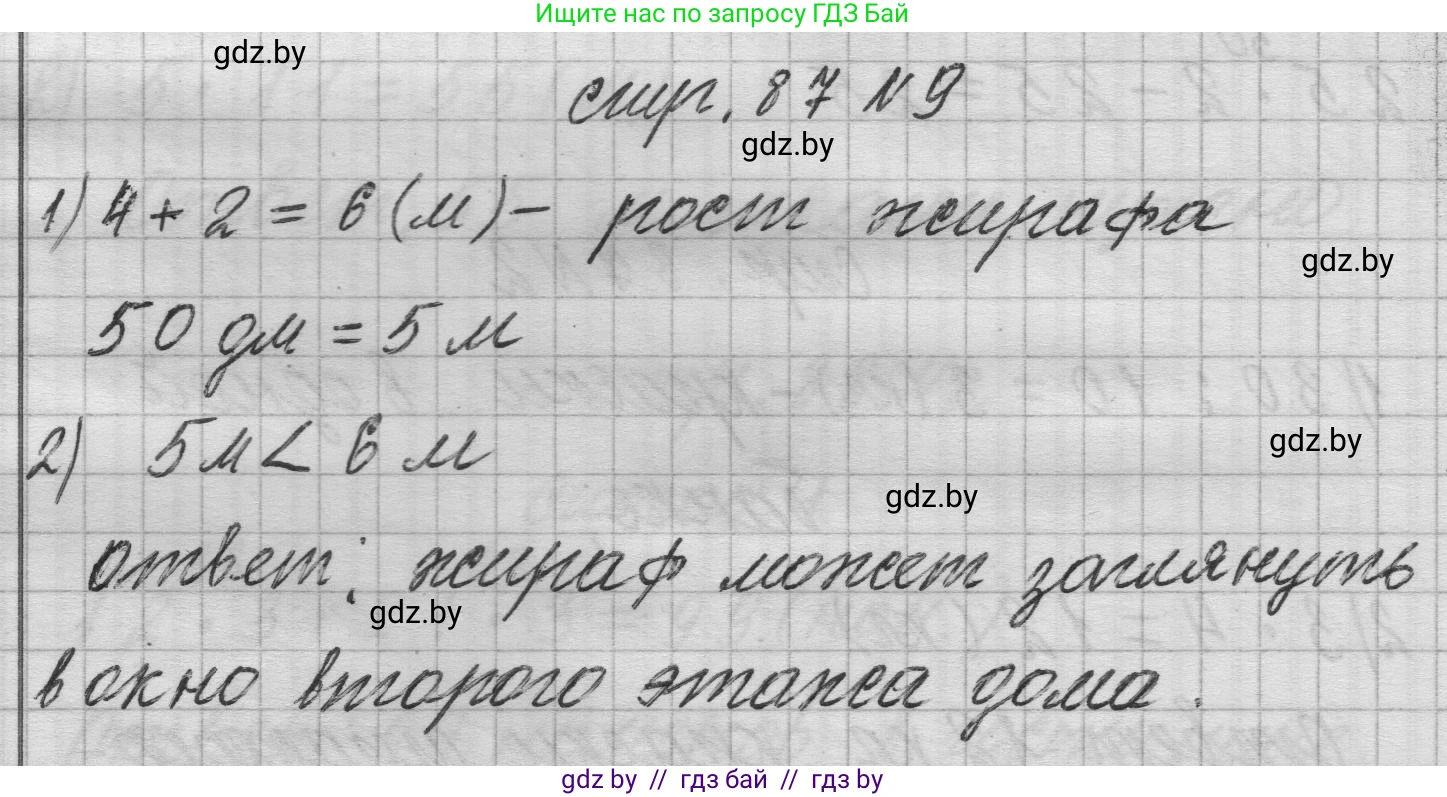 Ищите нас по запросу ГДЗ Бай
gdz.by
стр. 87 № 9
gdz.by
1) 4 + 2 = 6 (м) – рост жирафа
gdz.by
50 дм = 5 м
2) 5 м < 6 м
gdz.by
gdz.by
ответ: жираф может заглянуть
gdz.by
в окно второго этажа дома.
gdz.by // гдз бай // гдз by